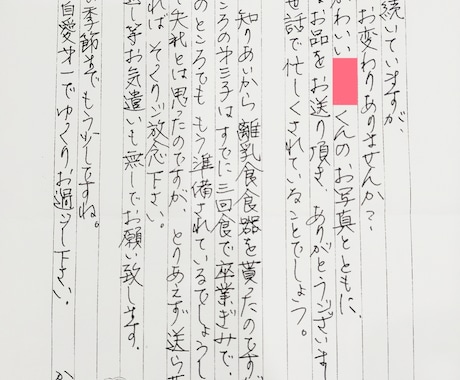 続いていますが、
お変わりありませんか？
かわいい くんのお写真とともに、
お品をお送り頂き、ありがとうございまし
世話で忙しくされていることでしょう。
知りあいから離乳食食器を貰ったのですが
ころの第三子はすでに三回食で卒業ぎみで、
のところでも もう準備されているでしょうし
で失礼とは思ったのですが、とりあえず送ら
ればそっくり放念下さい。
返し等お気遣いも無しでお願い致します。
の季節までもう少しですね。
自愛第一でゆっくりお過ごし下さい。
か